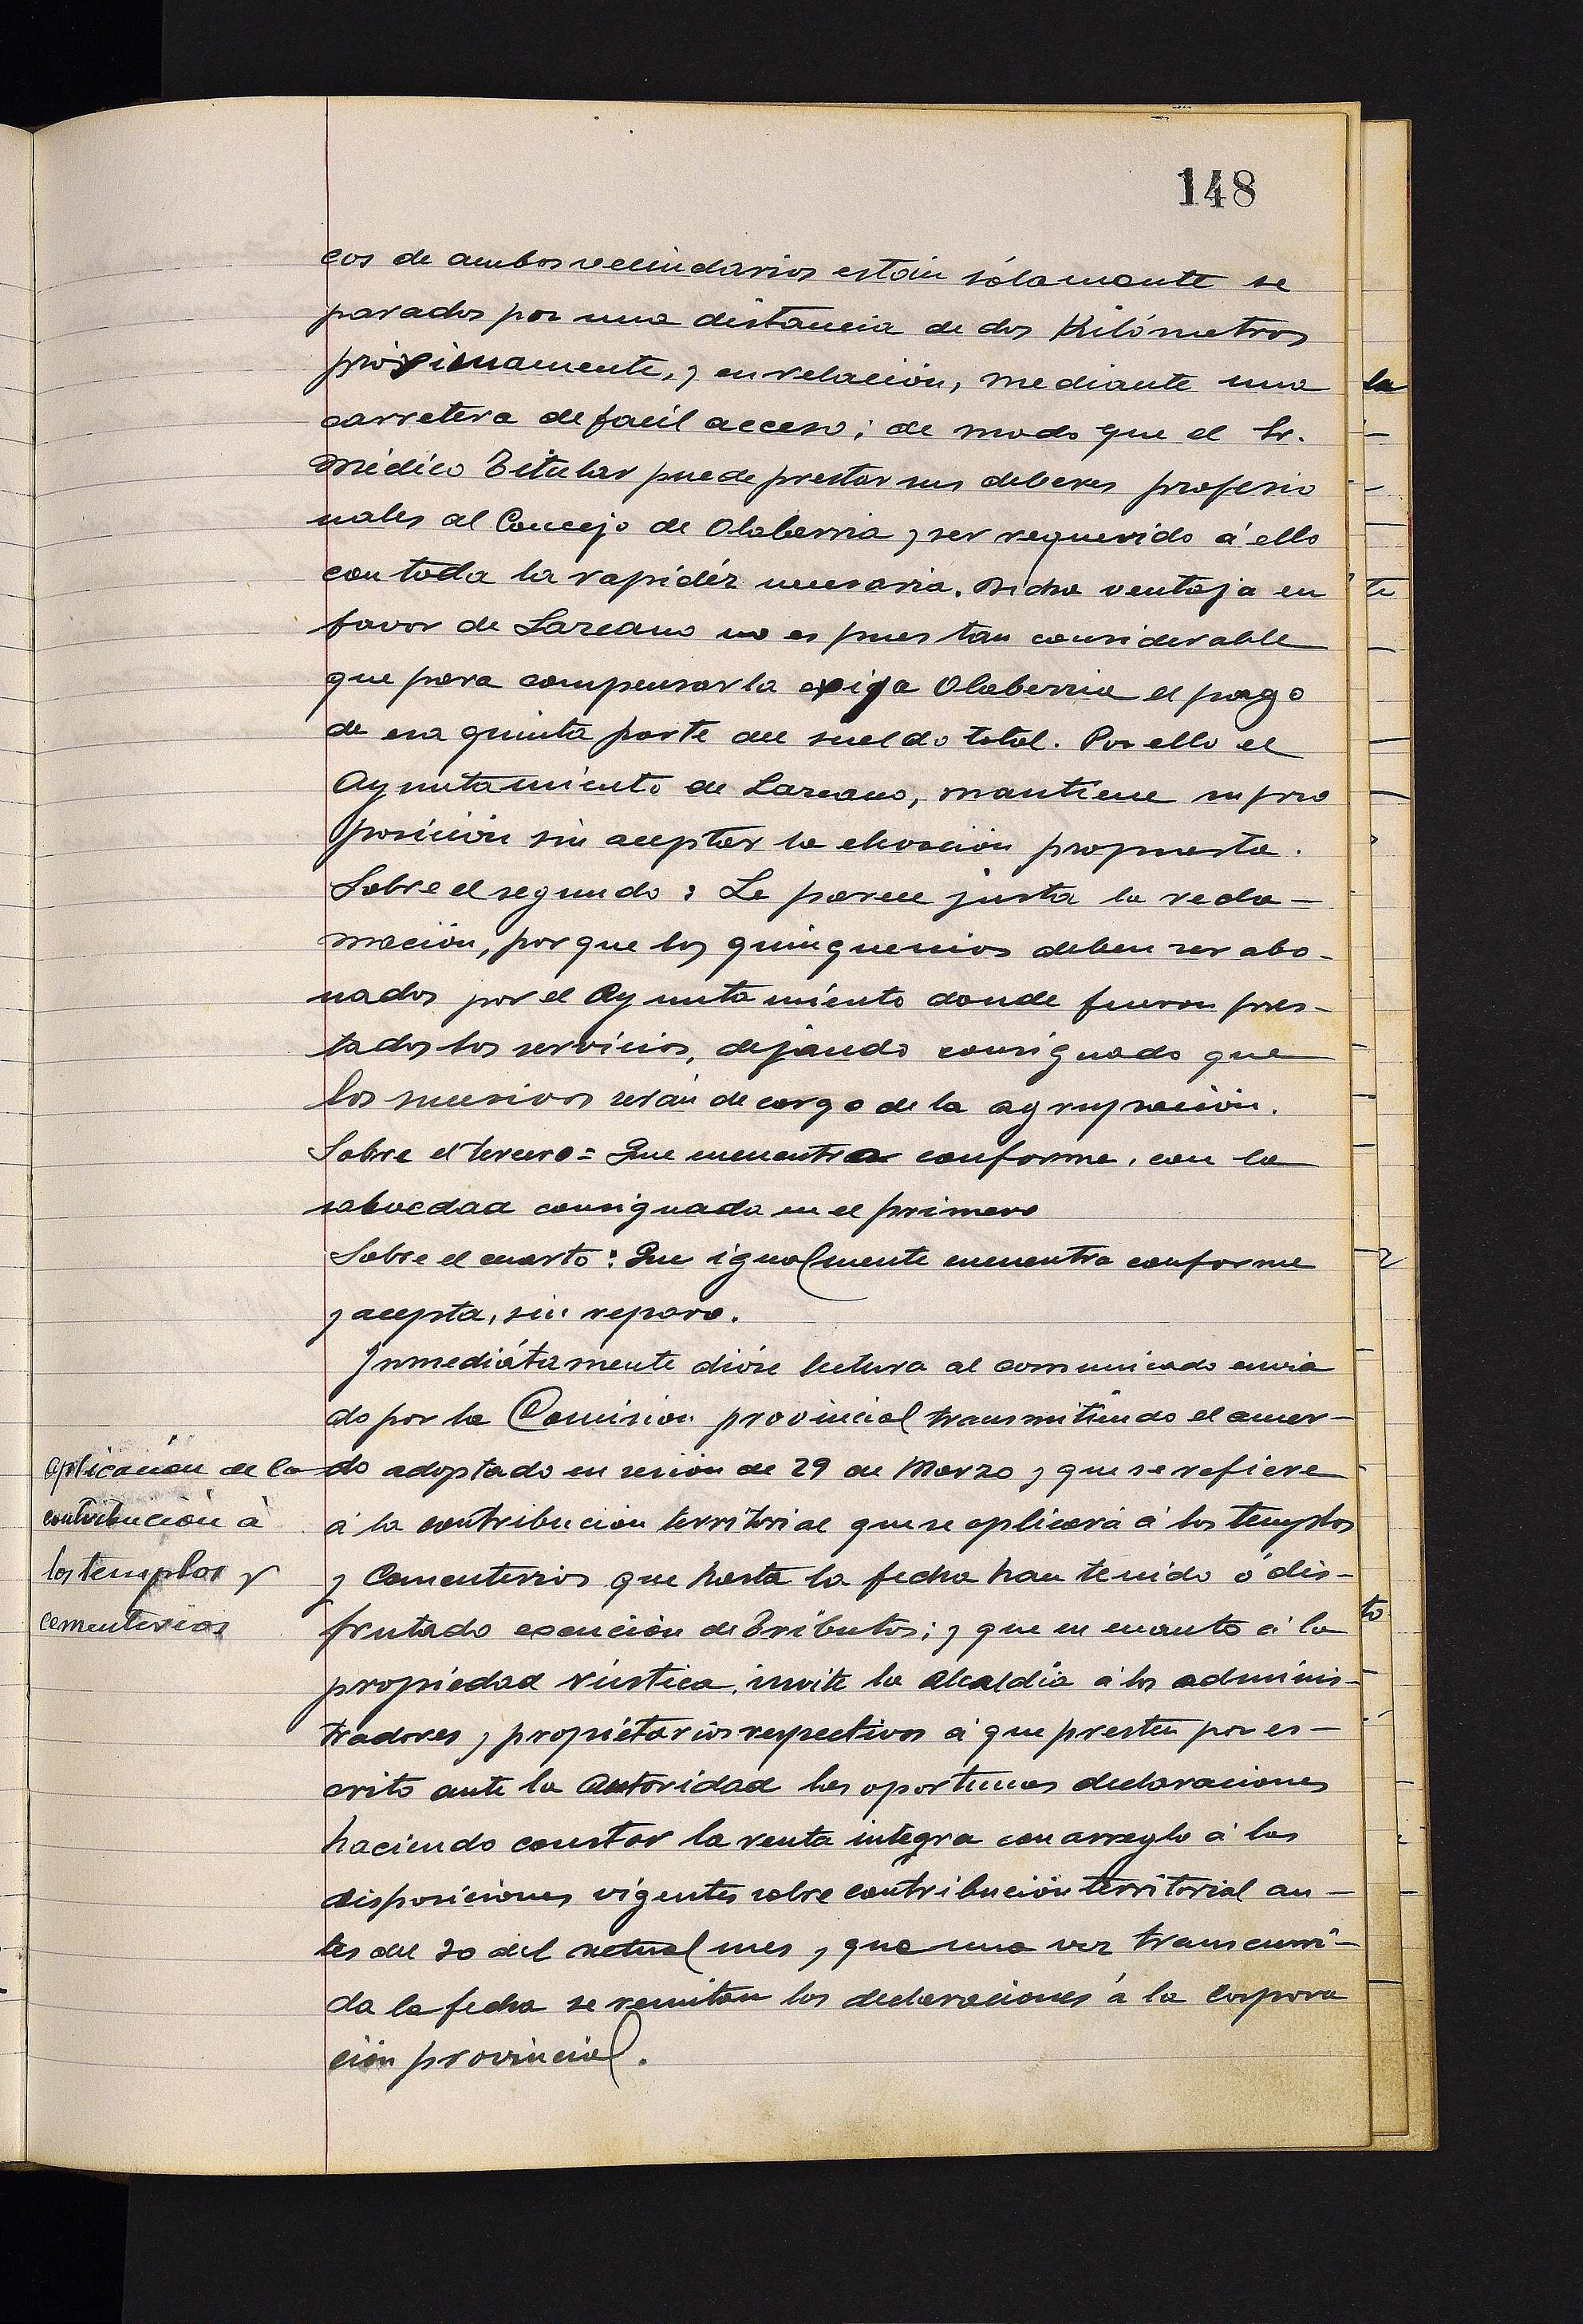 148
cos de ambos vecindarios están sólamente se
parados por una distancia de dos Kilómetros
próximamente, y en relación, mediante una
carretera de facil acceso; de modo que el Sr.
Médico Titular puede prestar sus deberes profesio
nales al Concejo de Olaberria y ser requerido á ello
con toda la rapidéz necesaria. Dicha ventaja en
favor de Lazcano no es pues tan considerable
que para compensarla exija Olaberria el pago
de esa quinta parte del sueldo total. Por ello el
Ayuntamiento de Lazcano, mantiene su pro
posición sin aceptar la elevación propuesta.
Sobre el segundo: Le parece justa la recla-
mación, porque los quinquenios deben ser abo-
nados por el Ayuntamiento donde fueron pres-
tados los servicios, dejando consignado que
los sucesivos serán de cargo de la agrupación.
Sobre el tercero = Que encuentra conforme, con la
salvedad consignada en el primero
Sobre el cuarto: Que igualmente encuentra conforme
y acepta, sin reparo.
Inmediátamente dióse lectura al comunicado envia
do por la Comision provincial transmitiendo el acuer-
do adoptado en sesión de 29 de Marzo y que se refiere
á la contribución territorial que se aplicará á los templos
y Cementerios que hasta la fecha han tenido ó dis-
frutado exención de Tributos; y que en cuanto á la
propiedad rústica, invite la Alcaldía á los adminis-
tradores y propietarios respectivos á que presten por es-
crito ante la Autoridad las oportunas declaraciones
haciendo constar la renta integra con arreglo á las
disposiciones vigentes sobre contribución territorial an-
tes del 20 del actual mes y que una vez transcurri-
da la fecha se remitan las declaraciones á la Corpora
ción provincial.
Aplicación de la
contribución á
los templos y
cementerios
la
te
to